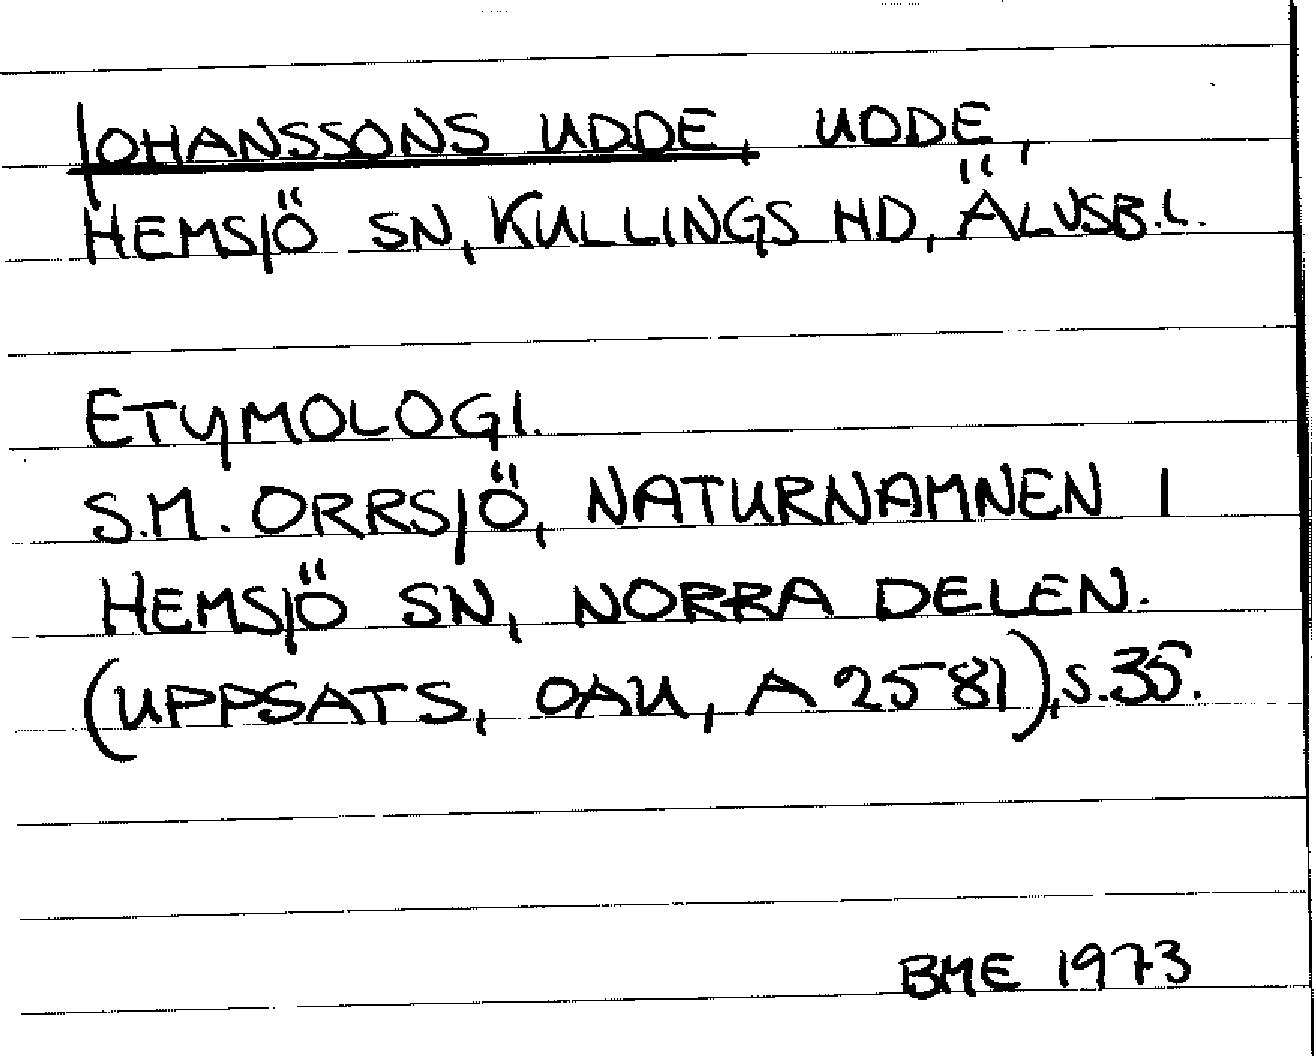 JOHANSSONS UDDE, UDDE,
HEMSJÖ SN, KULLINGS HD, ÄLVSB.L.
ETYMOLOGI.
S.M. ORRSJÖ, NATURNAMNEN I
HEMSJÖ SN, NORRA DELEN.
(UPPSATS, OAU, A 2581), S.35.
BME 1973